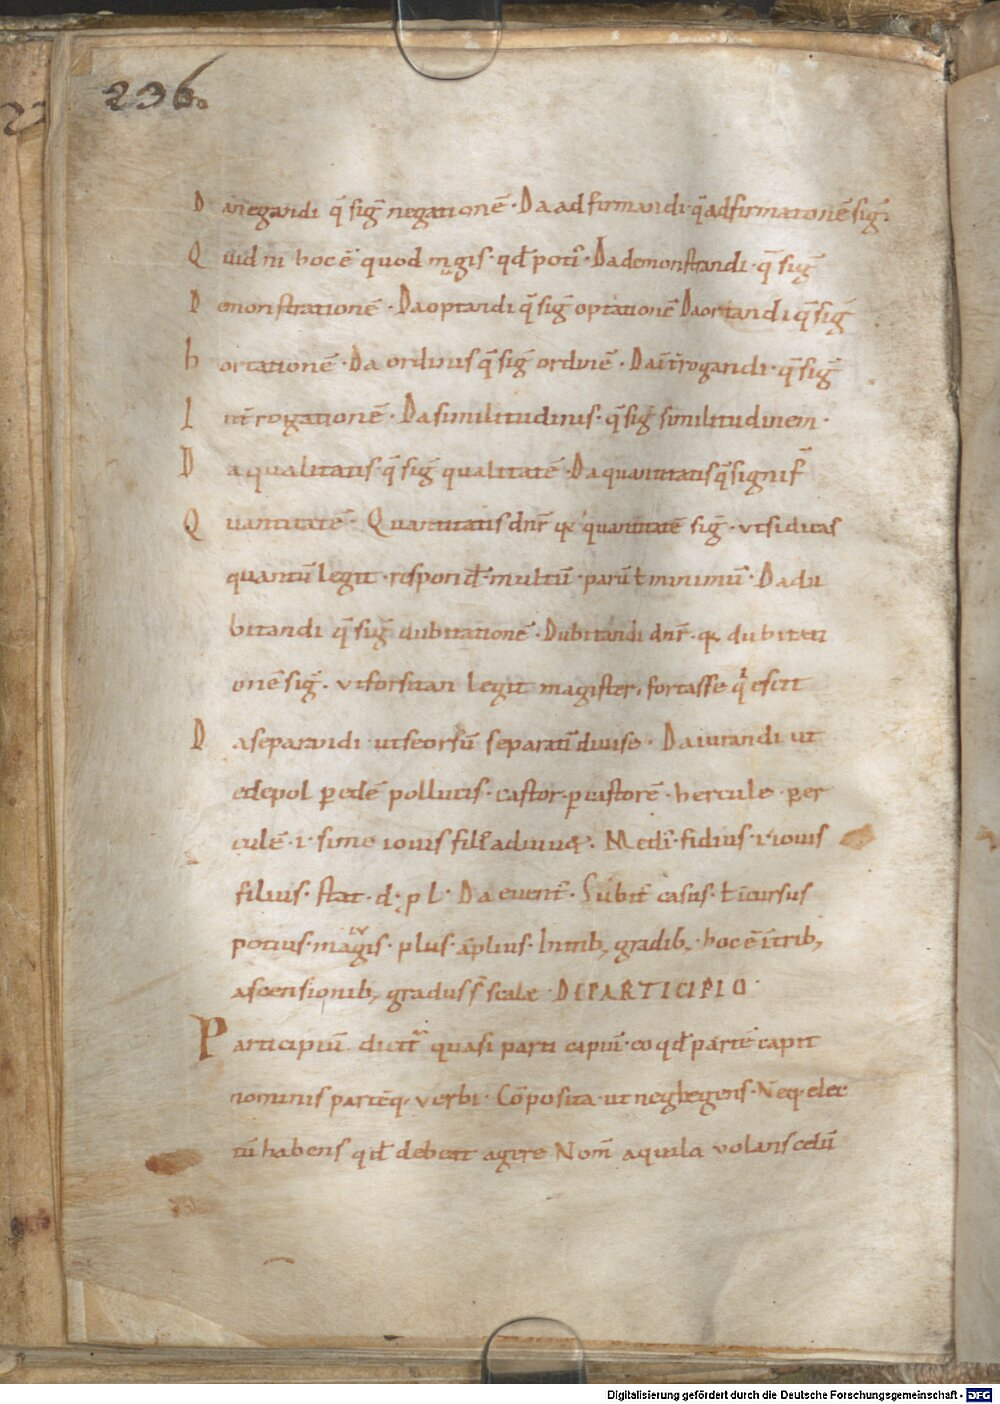 236.
Da negandi q̄ sig̅ negationē · Da adfirmandi · q̄ adfirmationē sig̅ ·
Quid ni hoc ē quod magis · qđ poti᾽ · Da demonstrandi · q̄ sig̅
Demonstrationē · Da optandi q̄ sig̅ optationē Da ortandi q̄ sig̅
hortationē · Da ordinis q̄ sig̅ ordinē · Da īt̄rogandi · q̄ sig̅
Int̄rogationē · Da similitudinis · q̄ sig̅ similitudinem ·
Da qualitatis · q̄ sig̅ qualitatē · Da quantitatis q̄ signif̄
Quantitatē · Quantitatis dn̄r quantitatē sig̅ · ut si dicas
quantū legit · respond̄ · multū · parū ł minimū · Da du
bitandi q̄ sig̅ dubitationē · Dubitandi dn̄r · dubitati
onē sig̅ · ut forsitan legit magister, fortasse
Da separandi ut seorsū separatī divise · Da iurandi ut
edepol ꝑ edē pollucis · castor · ꝑ castorē · hercule · ꝑ er
culē · i · sime iovis fili᾽ · Medi᾽ · fidius · i · iovis
filius · stat · d · p l · Da event᾽ · Subit᾽ casus · ł īcursus
potius · magis · plus · āplius · In trib; gradib; · hoc ē ī trib;
ascensionib; gradus s̄ scalę · DE PARTICIPIO ·
Participiū dicit᷑ quasi parti capiū · eo qđ partē capit
nominis partēq; verbi · Cōposita · ut neglegens · Neq; elec
tū habens qđ debeat agere Nom̄ aquila volans celū
Digitalisierung gefördert durch die Deutsche Forschungsgemeinschaft - DFG